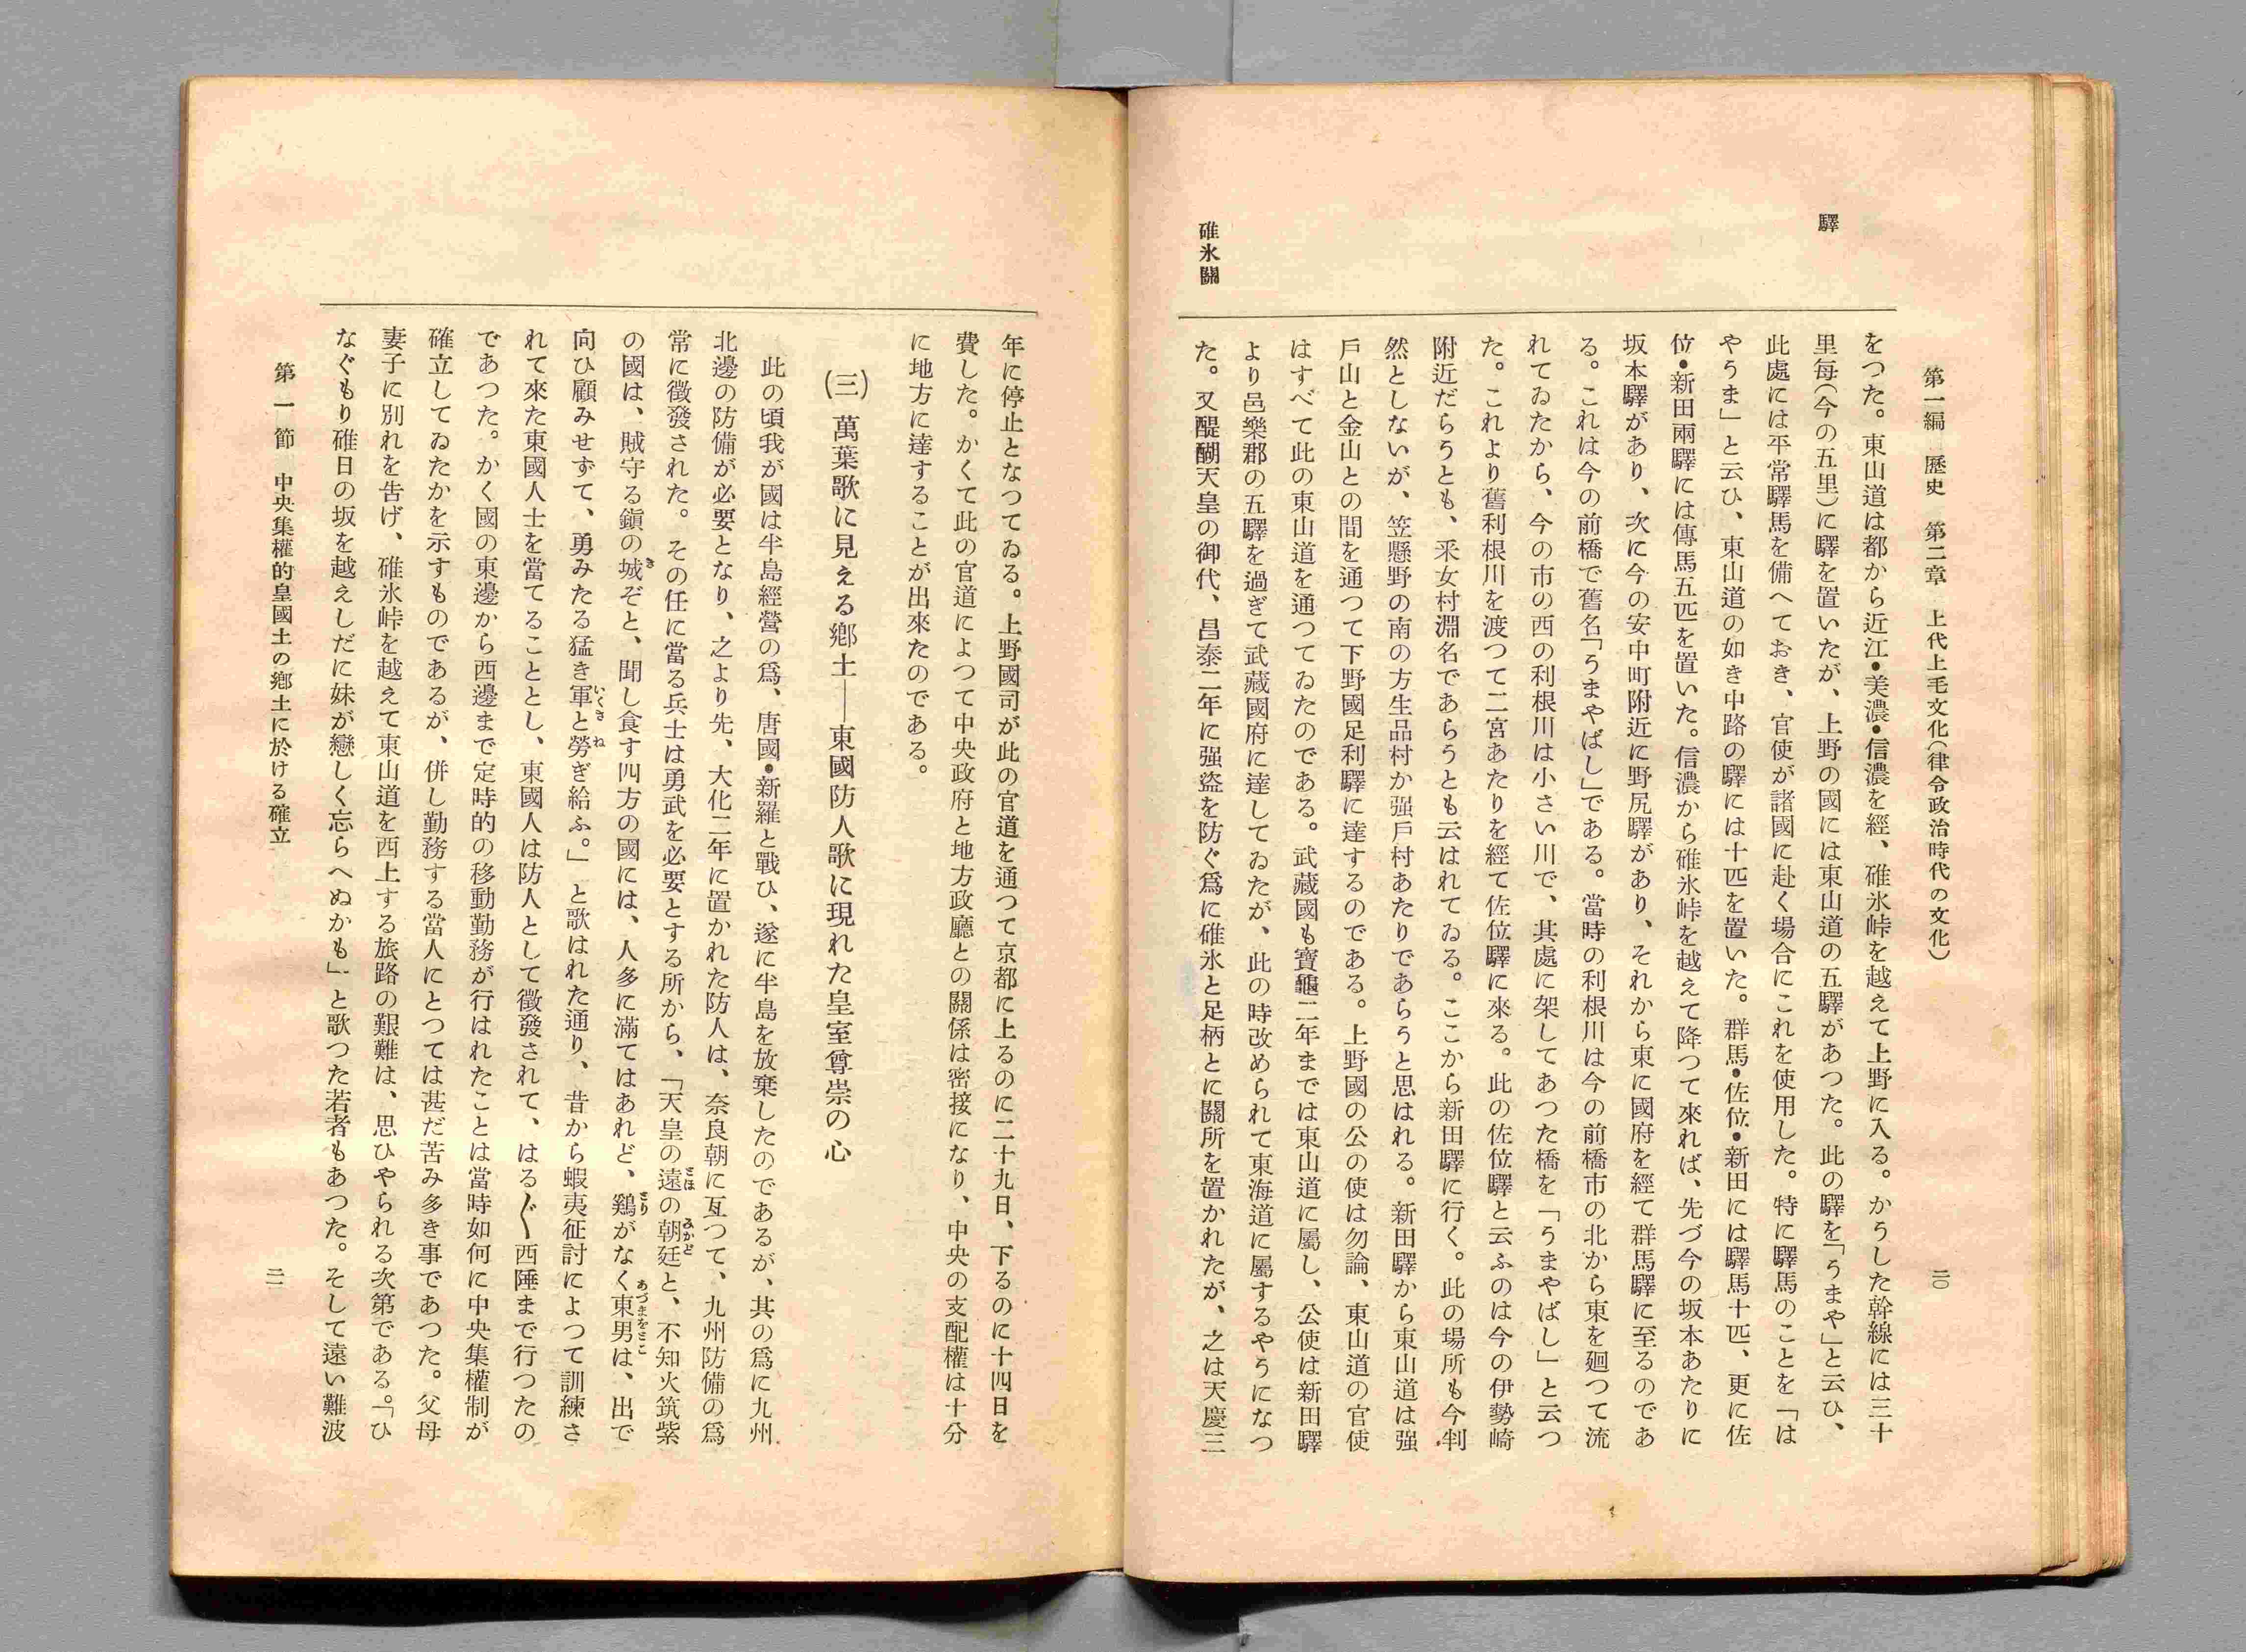 第一編　歷史　第二章　上代上毛文化(律令政治時代の文化)
二〇
驛
碓氷關
をつた。東山道は都から近江・美濃・信濃を經、碓氷峠を越えて上野に入る。かうした幹線には三十
里每(今の五里)に驛を置いたが、上野の國には東山道の五驛があつた。此の驛を「うまや」と云ひ、
此處には平常驛馬を備へておき、官使が諸國に赴く場合にこれを使用した。特に驛馬のことを「は
やうま」と云ひ、東山道の如き中路の驛には十匹を置いた。群馬・佐位・新田には驛馬十匹、更に佐
位・新田兩驛には傳馬五匹を置いた。信濃から碓氷峠を越えて降つて來れば、先づ今の坂本あたりに
坂本驛があり、次に今の安中町附近に野尻驛があり、それから東に國府を經て群馬驛に至るのであ
る。これは今の前橋で舊名「うまやばし」である。當時の利根川は今の前橋市の北から東を廻つて流
れてゐたから、今の市の西の利根川は小さい川で、其處に架してあつた橋を「うまやばし」と云つ
た。これより舊利根川を渡つて二宮あたりを經て佐位驛に來る。此の佐位驛と云ふのは今の伊勢崎
附近だらうとも、采女村淵名であらうとも云はれてゐる。ここから新田驛に行く。此の場所も今判
然としないが、笠懸野の南の方生品村か强戶村あたりであらうと思はれる。新田驛から東山道は强
戶山と金山との間を通つて下野國足利驛に達するのである。上野國の公の使は勿論、東山道の官使
はすべて此の東山道を通つてゐたのである。武藏國も寶龜二年までは東山道に屬し、公使は新田驛
より邑樂郡の五驛を過ぎて武藏國府に達してゐたが、此の時改められて東海道に屬するやうになつ
た。又醍醐天皇の御代、昌泰二年に强盜を防ぐ爲に碓氷と足柄とに關所を置かれたが、之は天慶三
年に停止となつてゐる。上野國司が此の官道を通つて京都に上るのに二十九日、下るのに十四日を
費した。かくて此の官道によつて中央政府と地方政廳との關係は密接になり、中央の支配權は十分
に地方に達することが出來たのである。
(三)　萬葉歌に見える鄕土——東國防人歌に現れた皇室尊崇の心
此の頃我が國は半島經營の爲、唐國・新羅と戰ひ、遂に半島を放棄したのであるが、其の爲に九州
北邊の防備が必要となり、之より先、大化二年に置かれた防人は、奈良朝に亙つて、九州防備の爲
常に徵發された。その任に當る兵士は勇武を必要とする所から、「天皇の遠の朝廷と、不知火筑紫
の國は、賊守る鎭の城ぞと、聞し食す四方の國には、人多に滿てはあれど、鷄がなく東男は、出で
向ひ顧みせずて、勇みたる猛き軍と勞ぎ給ふ。」と歌はれた通り、昔から蝦夷征討によつて訓練さ
れて來た東國人士を當てることとし、東國人は防人として徵發されて、はる〴〵西陲まで行つたの
であつた。かく國の東邊から西邊まで定時的の移動勤務が行はれたことは當時如何に中央集權制が
確立してゐたかを示すものであるが、併し勤務する當人にとつては甚だ苦み多き事であつた。父母
妻子に別れを告げ、碓氷峠を越えて東山道を西上する旅路の艱難は、思ひやられる次第である。「ひ
なぐもり碓日の坂を越えしだに妹が戀しく忘らへぬかも」と歌つた若者もあつた。そして遠い難波
第一節　中央集權的皇國土の鄕土に於ける確立
二一